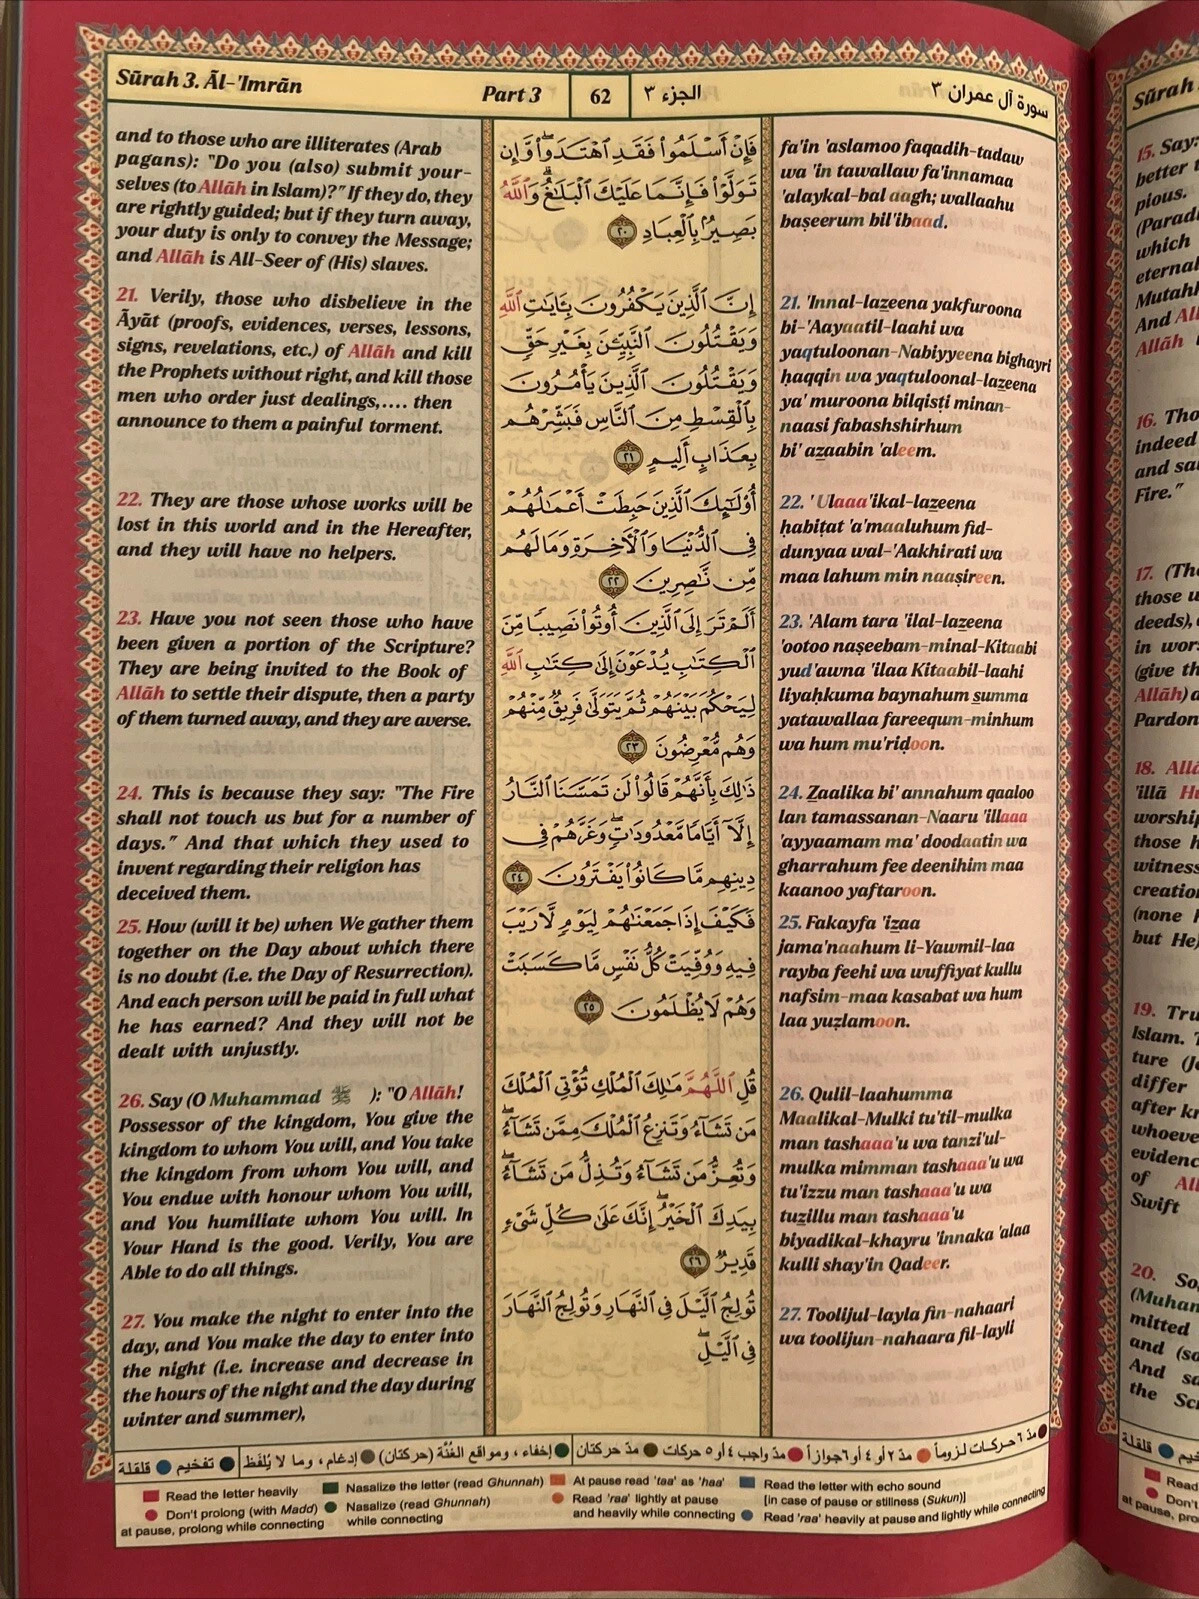 Sūrah 3. Āl-'Imrān
Part 3
62
الجزء ٣
سورة آل عمران ٣
and to those who are illiterates (Arab
pagans): "Do you (also) submit your-
selves (to Allāh in Islam)?" If they do, they
are rightly guided; but if they turn away,
your duty is only to convey the Message;
and Allāh is All-Seer of (His) slaves.
21. Verily, those who disbelieve in the
Āyāt (proofs, evidences, verses, lessons,
signs, revelations, etc.) of Allāh and kill
the Prophets without right, and kill those
men who order just dealings,.... then
announce to them a painful torment.
22. They are those whose works will be
lost in this world and in the Hereafter,
and they will have no helpers.
23. Have you not seen those who have
been given a portion of the Scripture?
They are being invited to the Book of
Allāh to settle their dispute, then a party
of them turned away, and they are averse.
24. This is because they say: "The Fire
shall not touch us but for a number of
days." And that which they used to
invent regarding their religion has
deceived them.
25. How (will it be) when We gather them
together on the Day about which there
is no doubt (i.e. the Day of Resurrection).
And each person will be paid in full what
he has earned? And they will not be
dealt with unjustly.
26. Say (O Muhammad ﷺ ): "O Allāh!
Possessor of the kingdom, You give the
kingdom to whom You will, and You take
the kingdom from whom You will, and
You endue with honour whom You will,
and You humiliate whom You will. In
Your Hand is the good. Verily, You are
Able to do all things.
27. You make the night to enter into the
day, and You make the day to enter into
the night (i.e. increase and decrease in
the hours of the night and the day during
winter and summer),
فَإِنْ أَسْلَمُوا۟ فَقَدِ ٱهْتَدَوا۟ ۖ وَّإِن
تَوَلَّوْا۟ فَإِنَّمَا عَلَيْكَ ٱلْبَلَـٰغُ ۗ وَٱللَّهُ
بَصِيرٌۢ بِٱلْعِبَادِ ٢٠
إِنَّ ٱلَّذِينَ يَكْفُرُونَ بِـَٔايَـٰتِ ٱللَّهِ
وَيَقْتُلُونَ ٱلنَّبِيِّـۧنَ بِغَيْرِ حَقٍّ
وَيَقْتُلُونَ ٱلَّذِينَ يَأْمُرُونَ
بِٱلْقِسْطِ مِنَ ٱلنَّاسِ فَبَشِّرْهُم
بِعَذَابٍ أَلِيمٍ ٢١
أُو۟لَـٰٓئِكَ ٱلَّذِينَ حَبِطَتْ أَعْمَـٰلُهُمْ
فِى ٱلدُّنْيَا وَٱلْـَٔاخِرَةِ وَمَا لَهُم
مِّن نَّـٰصِرِينَ ٢٢
أَلَمْ تَرَ إِلَى ٱلَّذِينَ أُوتُوا۟ نَصِيبًا مِّنَ
ٱلْكِتَـٰبِ يُدْعَوْنَ إِلَىٰ كِتَـٰبِ ٱللَّهِ
لِيَحْكُمَ بَيْنَهُمْ ثُمَّ يَتَوَلَّىٰ فَرِيقٌ مِّنْهُمْ
وَهُم مُّعْرِضُونَ ٢٣
ذَٰلِكَ بِأَنَّهُمْ قَالُوا۟ لَن تَمَسَّنَا ٱلنَّارُ
إِلَّآ أَيَّامًا مَّعْدُودَٰتٍ ۖ وَغَرَّهُمْ فِى
دِينِهِم مَّا كَانُوا۟ يَفْتَرُونَ ٢٤
فَكَيْفَ إِذَا جَمَعْنَـٰهُمْ لِيَوْمٍ لَّا رَيْبَ
فِيهِ وَوُفِّيَتْ كُلُّ نَفْسٍ مَّا كَسَبَتْ
وَهُمْ لَا يُظْلَمُونَ ٢٥
قُلِ ٱللَّهُمَّ مَـٰلِكَ ٱلْمُلْكِ تُؤْتِى ٱلْمُلْكَ
مَن تَشَآءُ وَتَنزِعُ ٱلْمُلْكَ مِمَّن تَشَآءُ
وَتُعِزُّ مَن تَشَآءُ وَتُذِلُّ مَن تَشَآءُ ۖ
بِيَدِكَ ٱلْخَيْرُ ۖ إِنَّكَ عَلَىٰ كُلِّ شَىْءٍ
قَدِيرٌ ٢٦
تُولِجُ ٱلَّيْلَ فِى ٱلنَّهَارِ وَتُولِجُ ٱلنَّهَارَ
فِى ٱلَّيْلِ ۖ
fa'in 'aslamoo faqadih-tadaw
wa 'in tawallaw fa'innamaa
'alaykal-bal aagh; wallaahu
baṣeerum bil'ibaad.
21. 'Innal-lazeena yakfuroona
bi-'Aayaatil-laahi wa
yaqtuloonan-Nabiyyeena bighayri
ḥaqqin wa yaqtuloonal-lazeena
ya' muroona bilqisṭi minan-
naasi fabashshirhum
bi' azaabin 'aleem.
22. 'Ulaaa'ikal-lazeena
ḥabiṭat 'a'maaluhum fid-
dunyaa wal-'Aakhirati wa
maa lahum min naaṣireen.
23. 'Alam tara 'ilal-lazeena
'ootoo naṣeebam-minal-Kitaabi
yud'awna 'ilaa Kitaabil-laahi
liyaḥkuma baynahum summa
yatawallaa fareequm-minhum
wa hum mu'riḍoon.
24. Zaalika bi' annahum qaaloo
lan tamassanan-Naaru 'illaaa
'ayyaamam ma' doodaatin wa
gharrahum fee deenihim maa
kaanoo yaftaroon.
25. Fakayfa 'izaa
jama'naahum li-Yawmil-laa
rayba feehi wa wuffiyat kullu
nafsim-maa kasabat wa hum
laa yuẓlamoon.
26. Qulil-laahumma
Maalikal-Mulki tu'til-mulka
man tashaaa'u wa tanzi'ul-
mulka mimman tashaaa'u wa
tu'izzu man tashaaa'u wa
tuzillu man tashaaa'u
biyadikal-khayru 'innaka 'alaa
kulli shay'in Qadeer.
27. Toolijul-layla fin-nahaari
wa toolijun-nahaara fil-layli
مدّ ٦ حركات لزوماً مدّ ٢ أو ٤ أو ٦ جوازاً مدّ واجب ٤ أو ٥ حركات مدّ حركتان إخفاء ، ومواقع الغُنَّة (حركتان) إدغام ، وما لا يُلفَظ تفخيم قلقلة
Read the letter heavily
Don't prolong (with Madd)
at pause, prolong while connecting
Nasalize the letter (read Ghunnah)
Nasalize (read Ghunnah)
while connecting
At pause read 'taa' as 'haa'
Read 'raa' lightly at pause
and heavily while connecting
Read the letter with echo sound
[in case of pause or stillness (Sukun)]
Read 'raa' heavily at pause and lightly while connecting
Sūrah
15. Say:
better
pious.
(Parad
which
eternal
Mutahh
And All
Allāh
16. Tho
indeed
and sa
Fire."
17. (The
those w
deeds),
in wor
(give th
Allāh) a
Pardon
18. Allā
'illā Hu
worship
those h
witness
creation
(none h
but He)
19. Tru
Islam. T
ture (Je
differ
after kn
whoeve
evidenc
of All
Swift
20. So
(Muham
mitted
and (so
And sa
the Scr
قلقلة
Read
Don't
at pause, pro